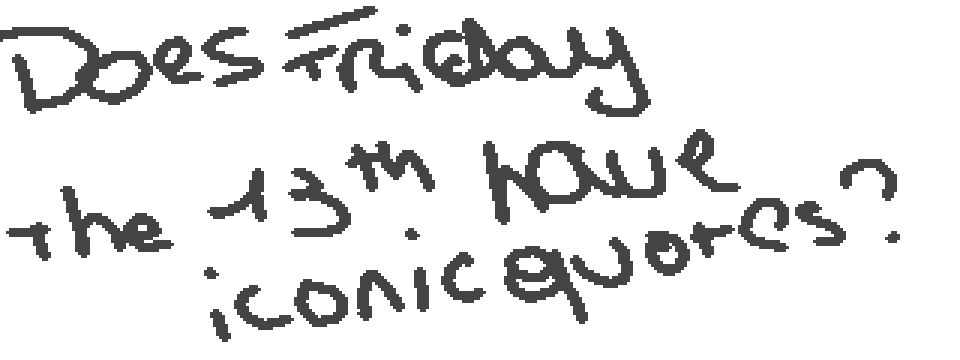 Does Friday
the 13th have
iconic quotes?